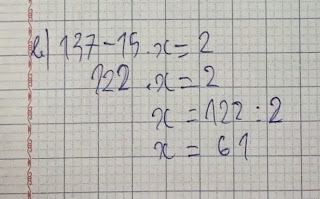 b) 137 - 15 . x = 2
122 . x = 2
x = 122 : 2
x = 61